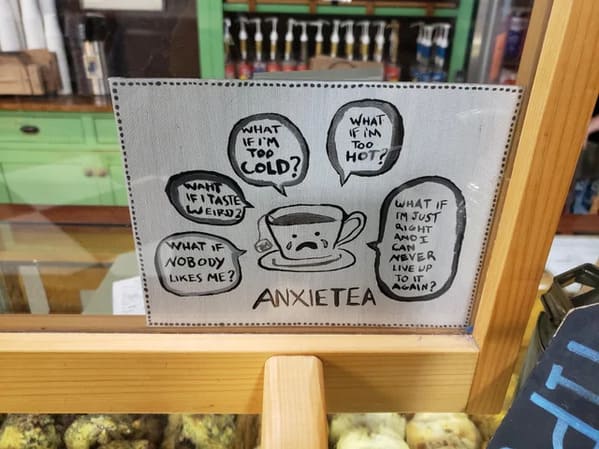 WHAT
IF I'M
TOO
COLD?
WHAT
IF I'M
TOO
HOT?
WAHT
IF I TASTE
WEIRD?
WHAT IF
NOBODY
LIKES ME?
WHAT IF
I'M JUST
RIGHT
AND I
CAN
NEVER
LIVE UP
TO IT
AGAIN?
ANXIETEA